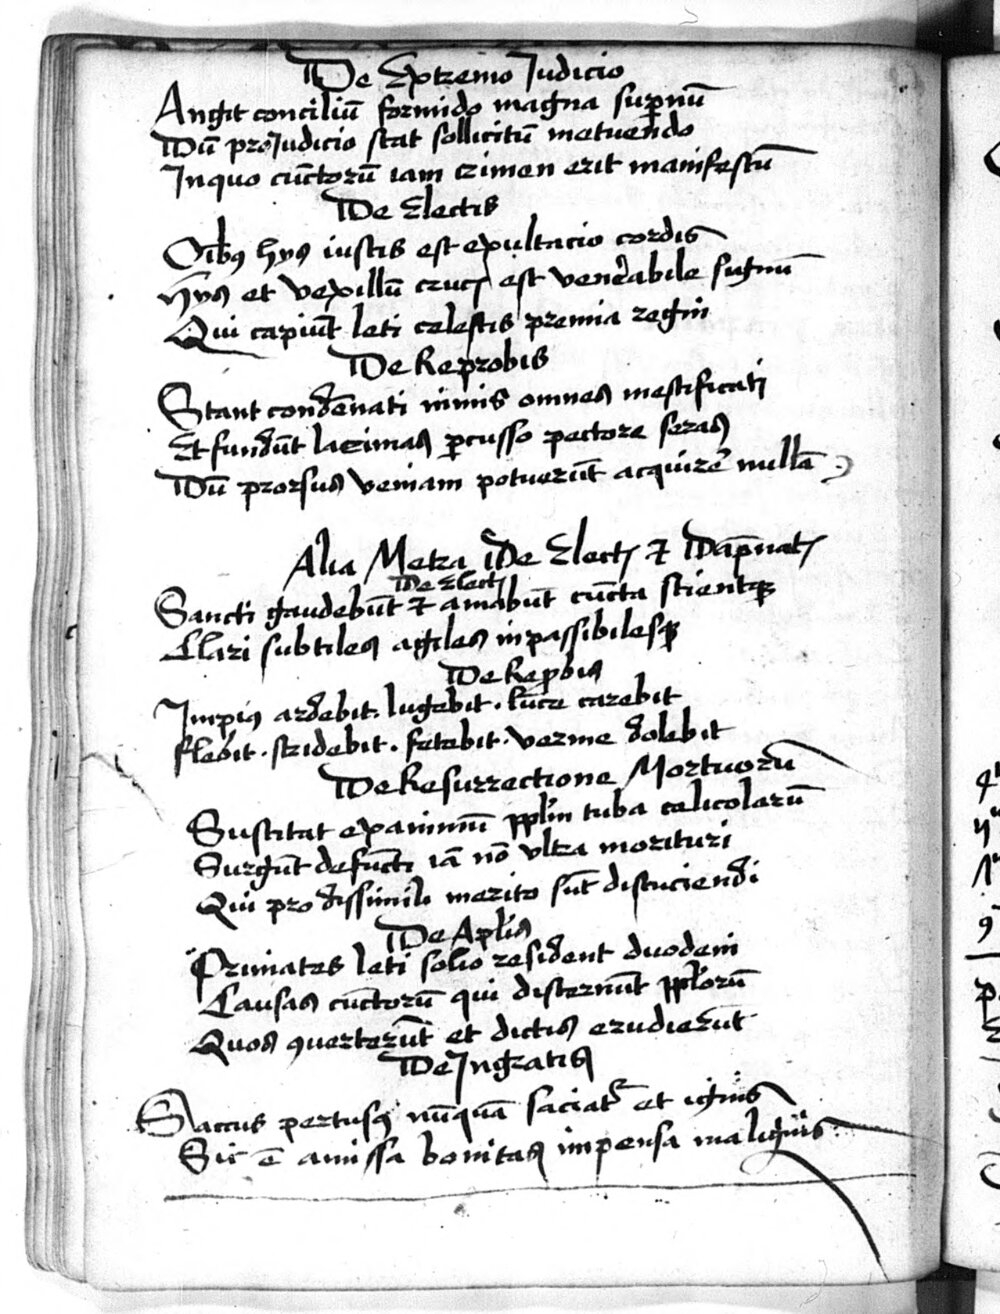 De Extremo Judicio
Angit conciliū formido magna supnū
Dū pro Judicio stat sollicitū metuendo
In quo cūctorū iam crimen erit manifestū
De Electis
Oībꝰ hijs iustis est exultacio cordis
Hijs et vexillū crucꝭ est venerabile signū
Qui capiūt leti celestis premia regni
De Reprobis
Stant condēnati nimis omnes mestificati
Et fundūt lacrimas ꝑcusso pectore seras
Dū prorsus veniam potuerūt acquirē nullā
Alia Metra De Electꝭ ⁊ Dāpnatꝭ
De Electꝭ
Sancti gaudebūt ⁊ amabūt cūcta scientqꝫ
Clari subtiles agiles inpassibilesqꝫ
De Repbis
Impiꝰ ardebit. lugebit. luce carebit
flebit. stridebit. fetebit. verme dolebit
De Resurrectione Mortuorū
Suscitat exanimū pplm tuba celicolarū
Surgūt defūcti iā nō vltra morituri
Qui pro dissimili merito sūt discuciendi
De Aplis
Primates leti solio resident duodeni
Causas cūctorū qui discernūt pplorū
Quos ꝯuerterūt et dictis erudierūt
De Ingratis
Saccus pertusꝰ nūquā saciatʳ et ignis
Sic ē amissa bonitas impensa malignis